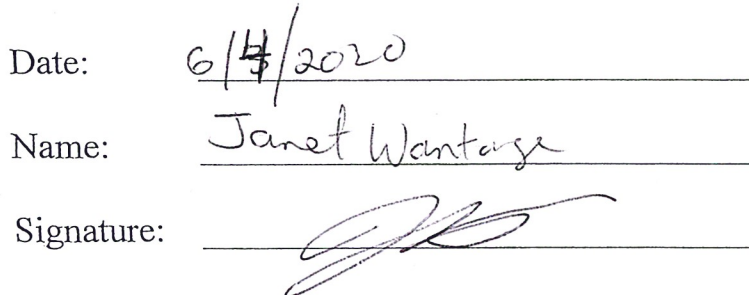 Date: 6/ /2020
Name: Janet Wantage
Signature: